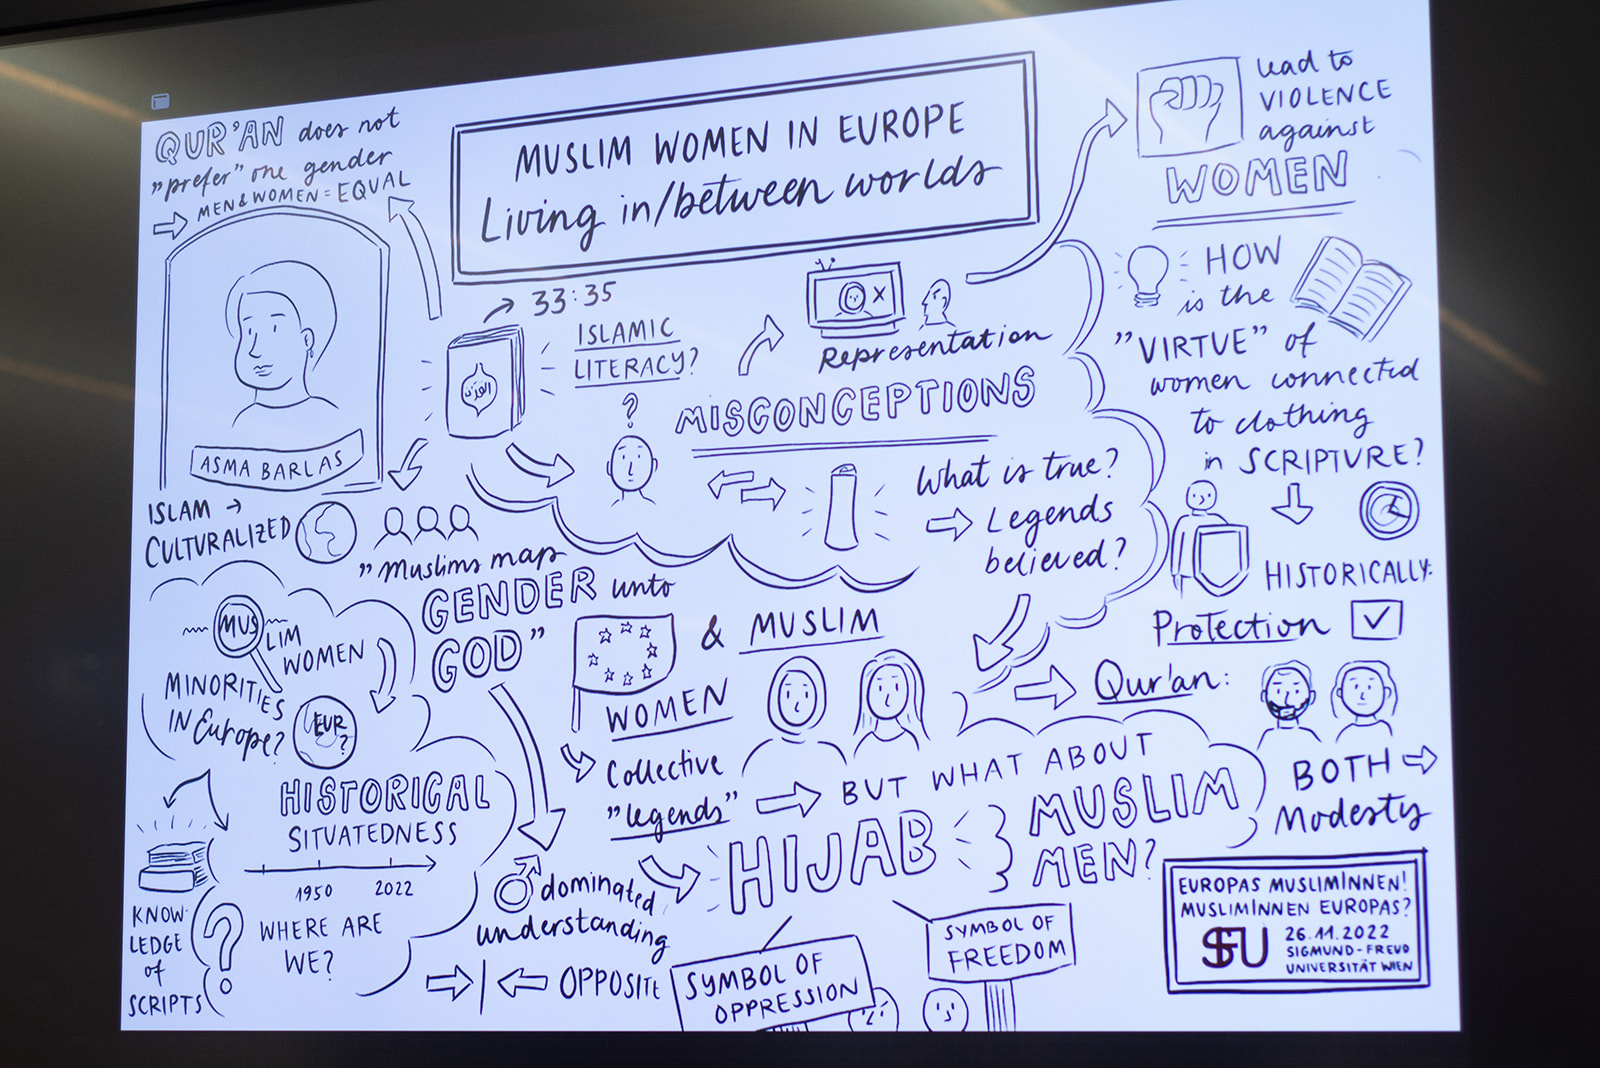 MUSLIM WOMEN IN EUROPE
Living in/between worlds
QUR'AN does not
"prefer" one gender
MEN & WOMEN = EQUAL
ASMA BARLAS
33:35
القرآن
ISLAMIC
LITERACY?
?
Representation
X
MISCONCEPTIONS
What is true?
Legends
believed?
lead to
VIOLENCE
against
WOMEN
HOW
is the
"VIRTUE" of
women connected
to clothing
in SCRIPTURE?
HISTORICALLY:
Protection
Qur'an:
BOTH
Modesty
ISLAM →
CULTURALIZED
"Muslims map
GENDER unto
GOD"
MUSLIM
WOMEN
MINORITIES
IN Europe?
EUR
?
HISTORICAL
SITUATEDNESS
1950 2022
WHERE ARE
WE?
KNOW-
LEDGE
of
SCRIPTS
?
♂ dominated
understanding
OPPOSITE
& MUSLIM
WOMEN
Collective
"legends"
BUT WHAT ABOUT
HIJAB
MUSLIM
MEN?
SYMBOL OF
OPPRESSION
SYMBOL OF
FREEDOM
EUROPAS MUSLIMINNEN!
MUSLIMINNEN EUROPAS?
SFU
26.11.2022
SIGMUND-FREUD
UNIVERSITÄT WIEN